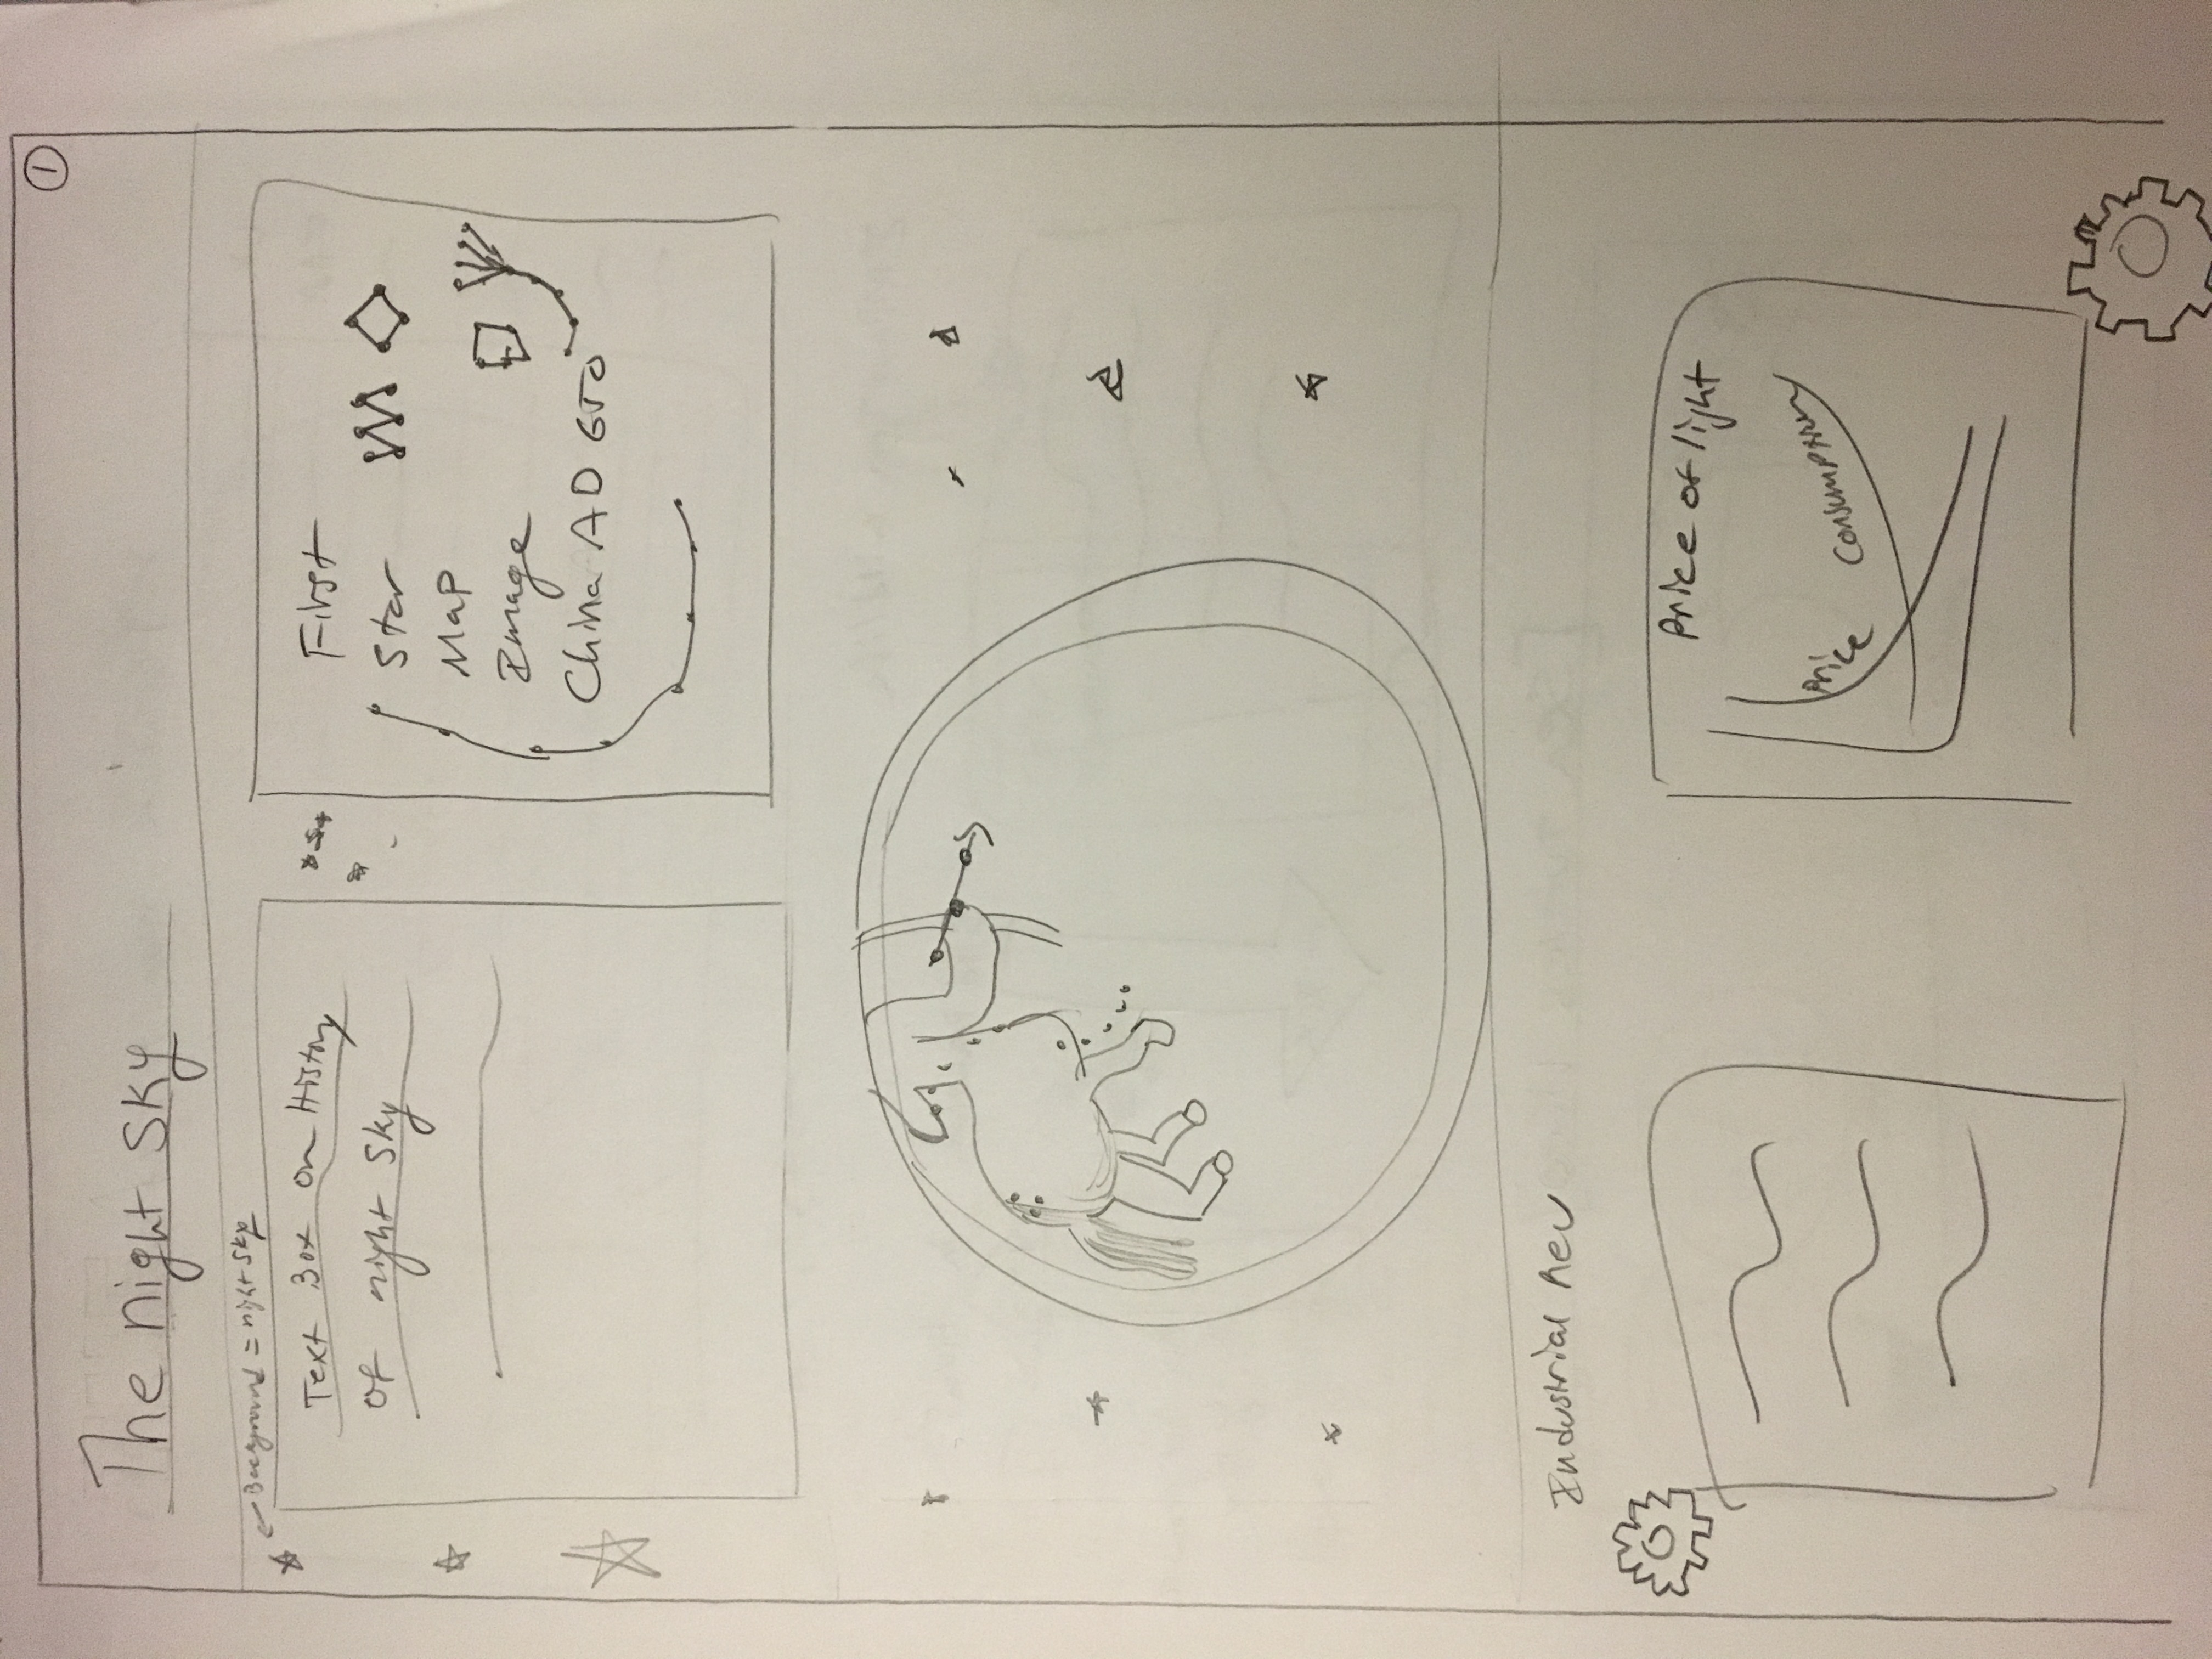 1
The night sky
Background = night sky
Text Box on History
of night sky
First
Star
Map
Image
China AD 650
Industrial Rev
Price of light
Price
Consumption